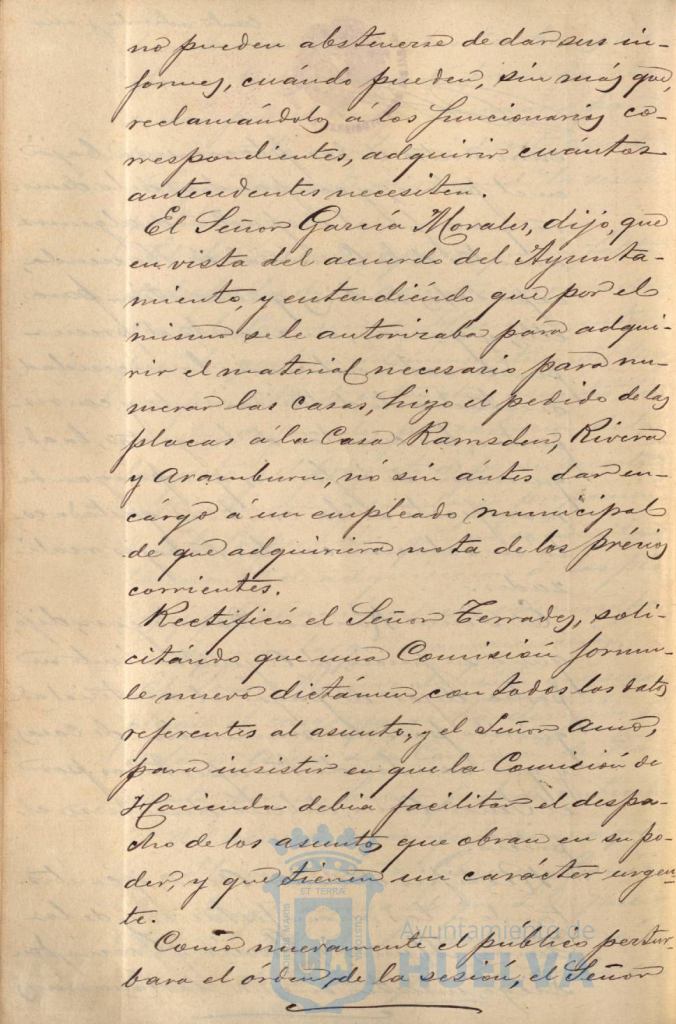 no pueden abstenerse de dar sus in-
formes, cuándo pueden, sin más que,
reclamándolos á los funcionarios co-
rrespondientes, adquirir cuántos
antecedentes necesiten.
El Señor García Morales, dijo, que
en vista del acuerdo del Ayunta-
miento, y entendiéndo que por el
mismo se le autorizaba para adqui-
rir el material necesario para nu-
merar las casas, hizo el pedido de las
placas á la Casa Ramsden, Rivera
y Aramburu, nó sin ántes dar en-
cárgo á un empleado municipal
de que adquiriera nota de los précios
corrientes.
Rectificó el Señor Terrades, soli-
citándo que una Comisión formu-
le nuevo dictámen con todos los datos
referentes al asunto, y el Señor Amo,
para insistir en que la Comisión de
Hacienda debia facilitar el despa-
cho de los asuntos que obran en su po-
der, y que tienen un carácter urgen-
te.
Como nuevamente el público pertur-
bara el órden, de la sesión, el Señor
ET TERRÆ
Ayuntamiento de
HUELVA